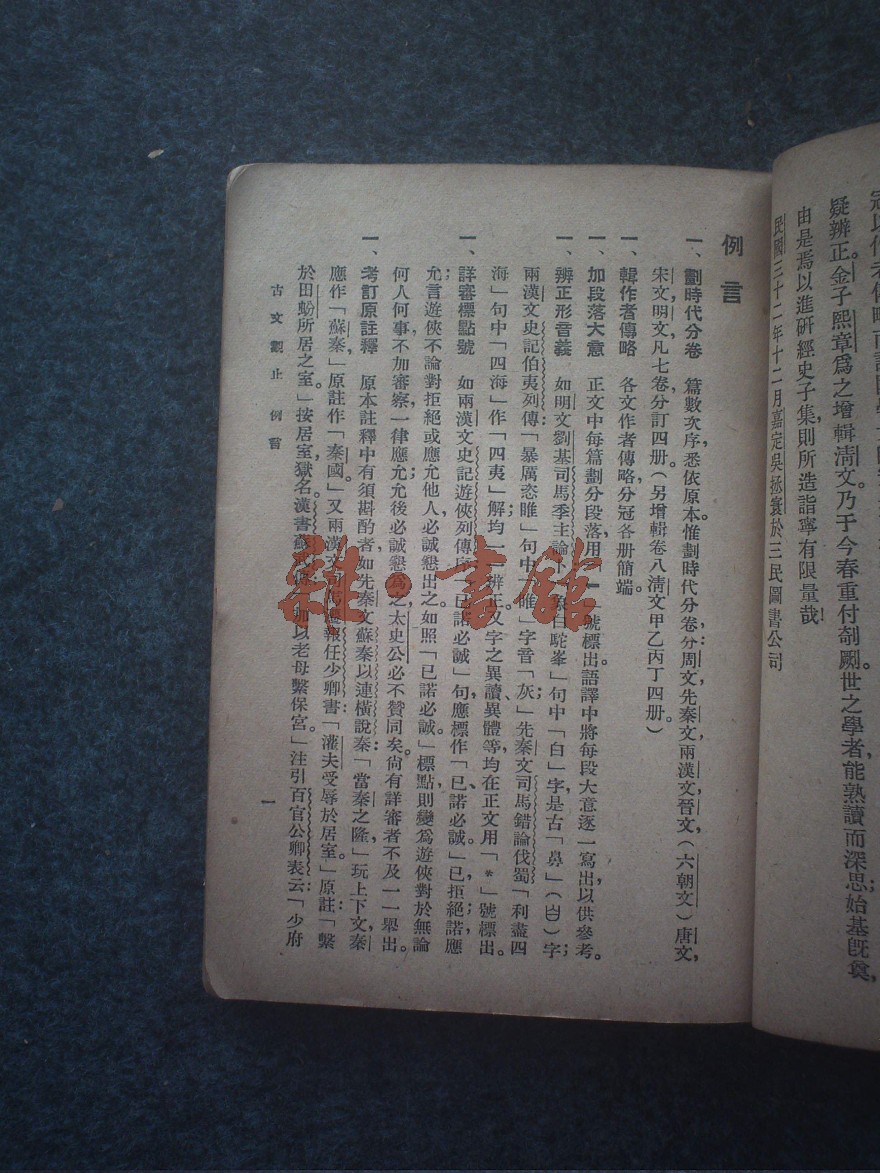 疑辨正。金子熙章爲之增輯清文。乃于今春重付剞劂。世之學者，能熟讀而深思，始基旣奠，
由是焉以進研經史子集，則所造詣寧有限量哉！
民國三十二年十二月嘉定吳拯寰於三民圖書公司
例言
一、劃時代分卷　篇數次序，悉依原本，惟劃時代分卷，分：周文，先秦文，兩漢文，晉文，（六朝文）唐文，
宋文，明文，凡七卷，分訂四册。（另增輯卷八淸文甲乙丙丁四册。）
一、輯作者傳略　各文作者傳略，分冠各册簡端。
一、加段落大意　正文中每篇劃分段落，用號標出。語譯中將每段大意逐一寫出，以供參考。
一、辨正形音義　如明文劉基司馬季主論卜白駝峯」句中「白」字是古「鼻」（）字；
兩漢文史記伯夷列傳：「暴厲恣睢」句中「睢」字音「灰」；先秦文司馬錯論伐蜀「利盡四
海」句中「四海」作「四夷」解，均一一辨正。又字之異讀、異體等，均在正文用「*」號標出。
一、詳審標點號　如兩漢文史記遊俠列傳序「已諾必誠」句，應標作「已、諾必誠。」已，拒絕；諾，應
允；言遊俠不論對拒絕或應允他人，必誠懇出之。如照「已諾必誠。」標點，則變爲遊俠對於無論
何人何事，不加審察，一律應允，允後必誠懇爲之，太史公必不贊同矣。尙有詳審者，不及一一舉出。
一、考訂原註釋　原本註釋中有須斟酌者，如先秦文蘇秦以連橫說秦：「當秦之隆」，玩上下文，秦
應作「蘇秦」，原註作「秦國。」又兩漢文司馬遷報任少卿書：「灌夫受辱於居室。」原註：「繫
於田蚡所居之室。」按居室，獄名。漢書蘇武傳：「加以老母繫保宮」注引百官公卿表云：「少府
古文觀止　例言
一
雜·書館